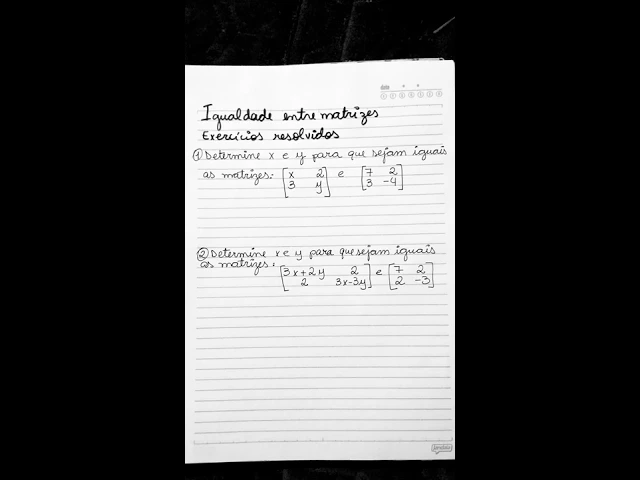 data
Igualdade entre matrizes
Exercícios resolvidos
① Determine x e y para que sejam iguais
as matrizes: [x 2] e [7 2]
[3 y] [3 -4]
② Determine x e y para que sejam iguais
as matrizes:
[3x+2y 2] e [7 2]
[2 3x-3y] [2 -3]